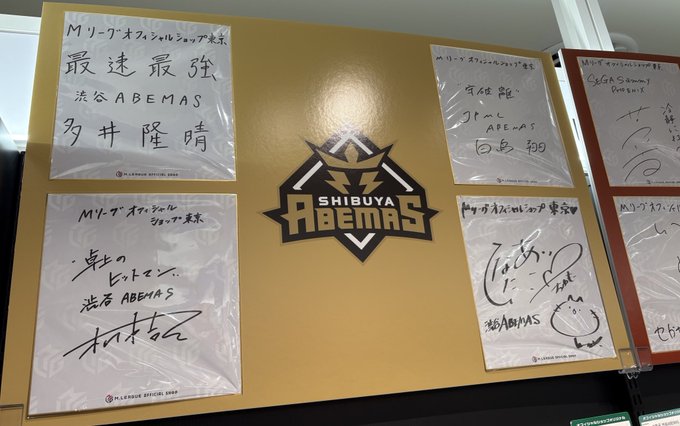 Mリーグオフィシャルショップ東京
最速最強
渋谷ABEMAS
多井隆晴
M.LEAGUE OFFICIAL SHOP
Mリーグオフィシャル
ショップ東京
卓上の
ヒットマン
渋谷ABEMAS
M.LEAGUE OFFICIAL SHOP
SHIBUYA
ABEMAS
Mリーグオフィシャルショップ東京
"守破離"
JPML
ABEMAS
白鳥翔
M.LEAGUE OFFICIAL SHOP
Mリーグオフィシャルショップ東京♡
渋谷ABEMAS
M.LEAGUE OFFICIAL SHOP
Mリーグオフィシャルショップ東京
SEGA Sammy
PHOENIX
M.LEAGUE OFFICIAL SHOP
Mリーグオフィシ
オフィシャルショップオリジナル